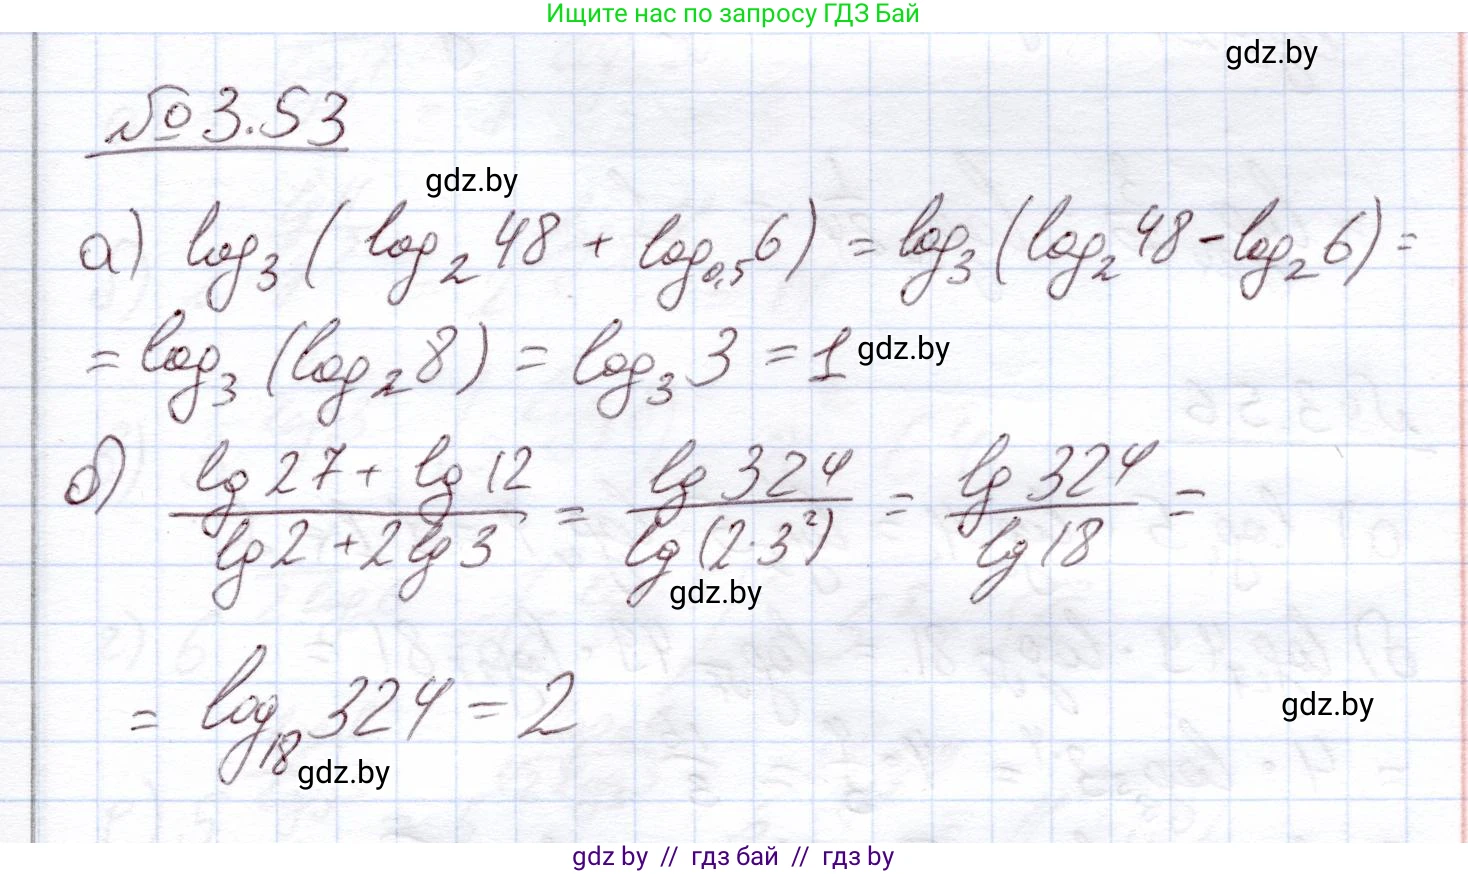 Ищите нас по запросу ГДЗ Бай
gdz.by
№ 3.53
gdz.by
а) log₃ ( log₂ 48 + log₀,₅ 6 ) = log₃ ( log₂ 48 - log₂ 6 ) =
= log₃ ( log₂ 8 ) = log₃ 3 = 1 gdz.by
б) (lg 27 + lg 12) / (lg 2 + 2 lg 3) = lg 324 / lg (2 · 3²) = lg 324 / lg 18 =
gdz.by
= log₁₈ 324 = 2
gdz.by
gdz.by
gdz by // гдз бай // гдз by